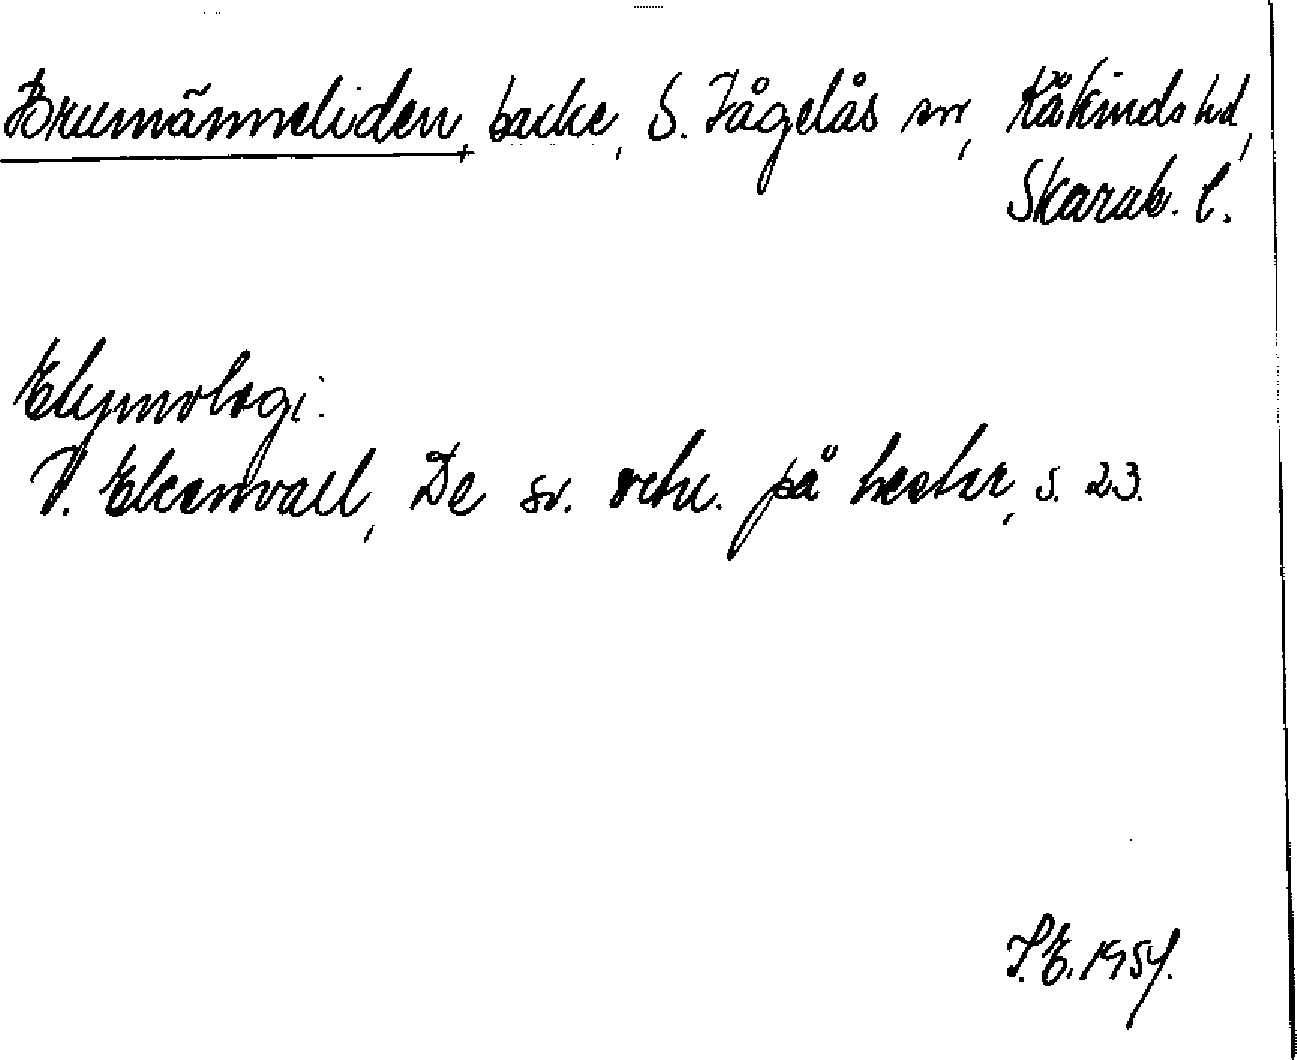 Brumänneliden, backe, S. Fågelås sn, Kåkinds hd,
Skarab. l.
Etymologi:
V. Ekenvall, De sv. ortn. på hester, s. 23.
I.E. 1954.